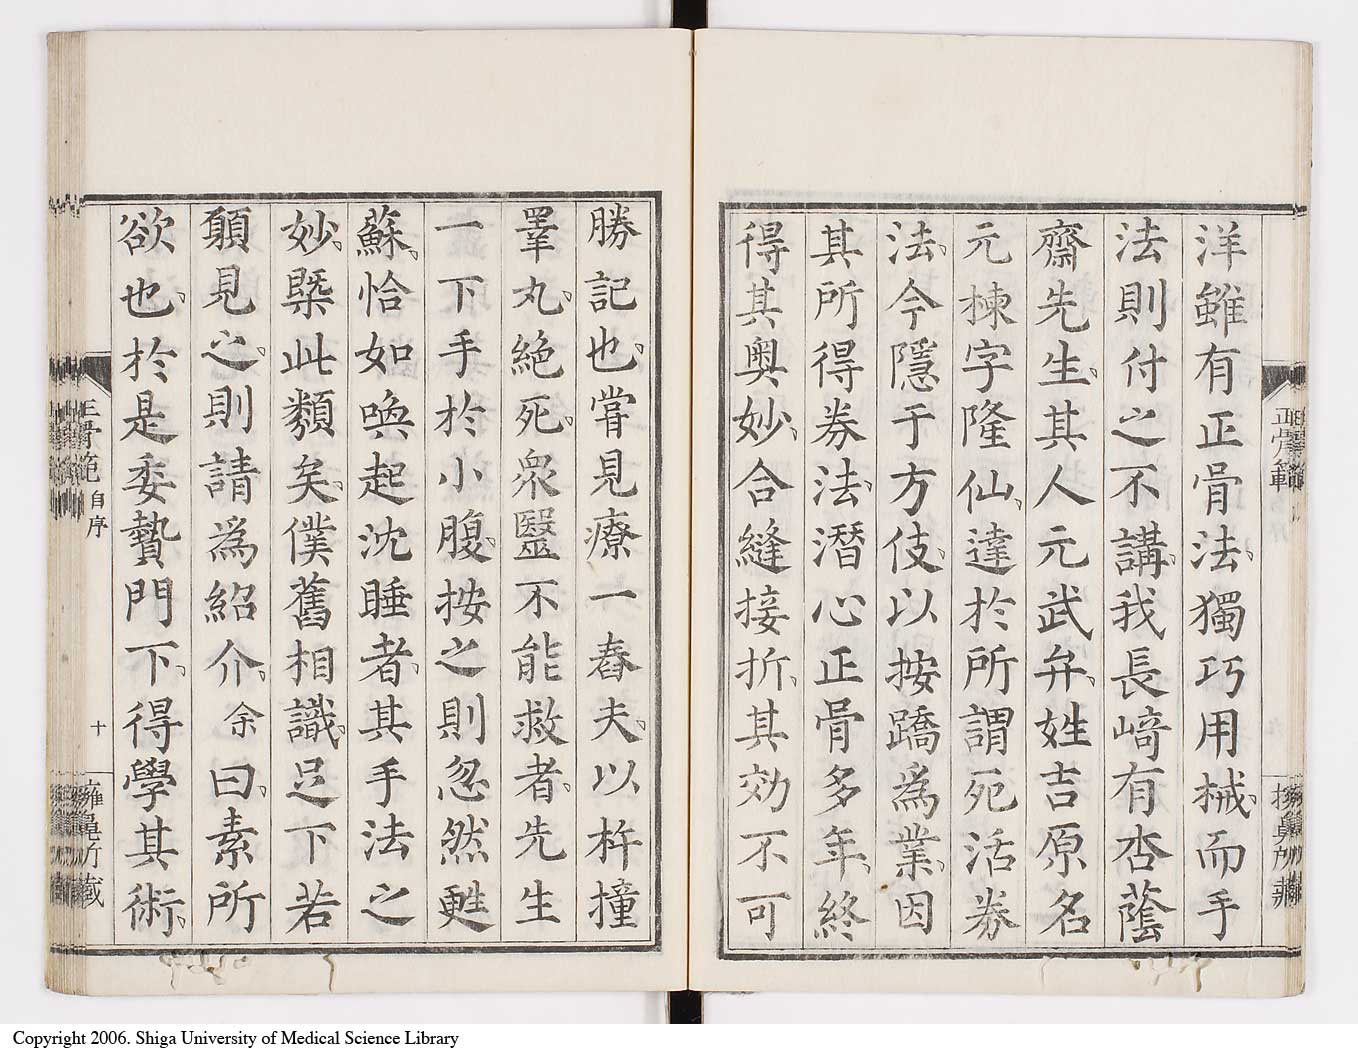 洋雖有正骨法獨巧用械而手
法則付之不講我長﨑有杏蔭
齋先生其人元武弁姓吉原名
元棟字隆仙達於所謂死活劵
法今隱于方伎以按蹻爲業因
其所得劵法潛心正骨多年終
得其奧妙合縫接折其効不可
勝記也甞見療一舂夫以杵撞
睪丸絕死衆醫不能救者先生
一下手於小腹按之則忽然甦
蘇恰如喚起沈睡者其手法之
妙槩此類矣僕舊相識足下若
願見之則請爲紹介余曰素所
欲也於是委贄門下得學其術
正骨範 自序
十
擁鼻所藏
Copyright 2006. Shiga University of Medical Science Library